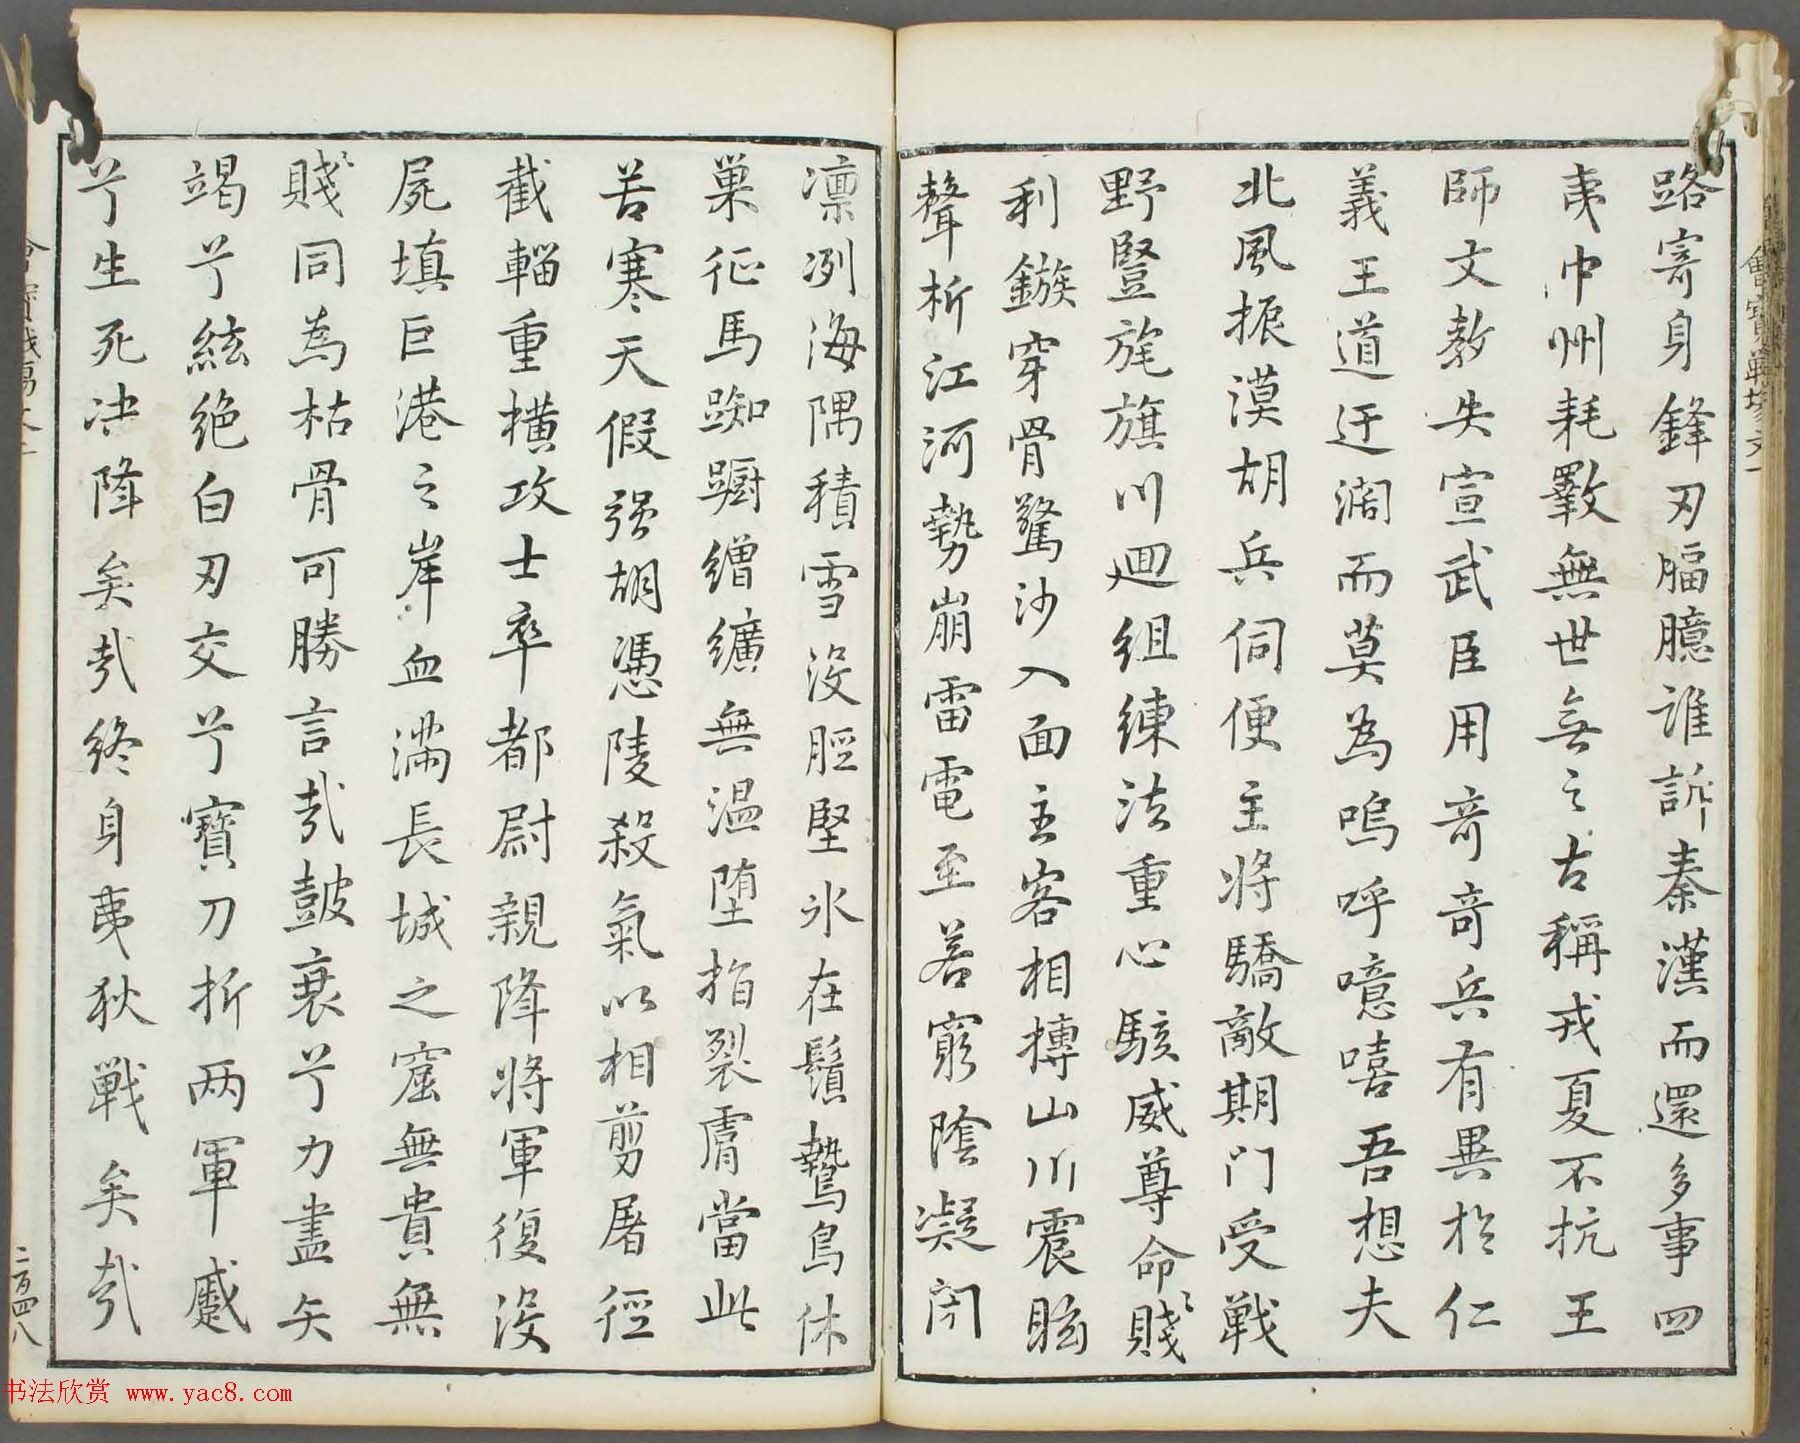 路寄身鋒刃腷臆誰訴秦漢而還多事四
夷中州耗斁無世無之古稱戎夏不抗王
師文教失宣武臣用奇奇兵有異於仁
義王道迂闊而莫為嗚呼噫嘻吾想夫
北風振漠胡兵伺便主將驕敵期門受戰
野豎旄旗川迴組練法重心駭威尊命賤
利鏃穿骨驚沙入面主客相搏山川震眩
聲析江河勢崩雷電至若窮陰凝閉
凛冽海隅積雪沒脛堅氷在鬚鷙鳥休
巢征馬踟躕繒纊無温墮指裂膚當此
苦寒天假强胡憑陵殺氣以相剪屠徑
截輜重橫攻士卒都尉親降將軍復沒
屍填巨港之岸血滿長城之窟無貴無
賤同為枯骨可勝言哉鼓衰兮力盡矢
竭兮絃絕白刃交兮寶刀折两軍蹙
兮生死决降矣哉終身夷狄戰矣哉
二百四八
书法欣赏 www.yac8.com